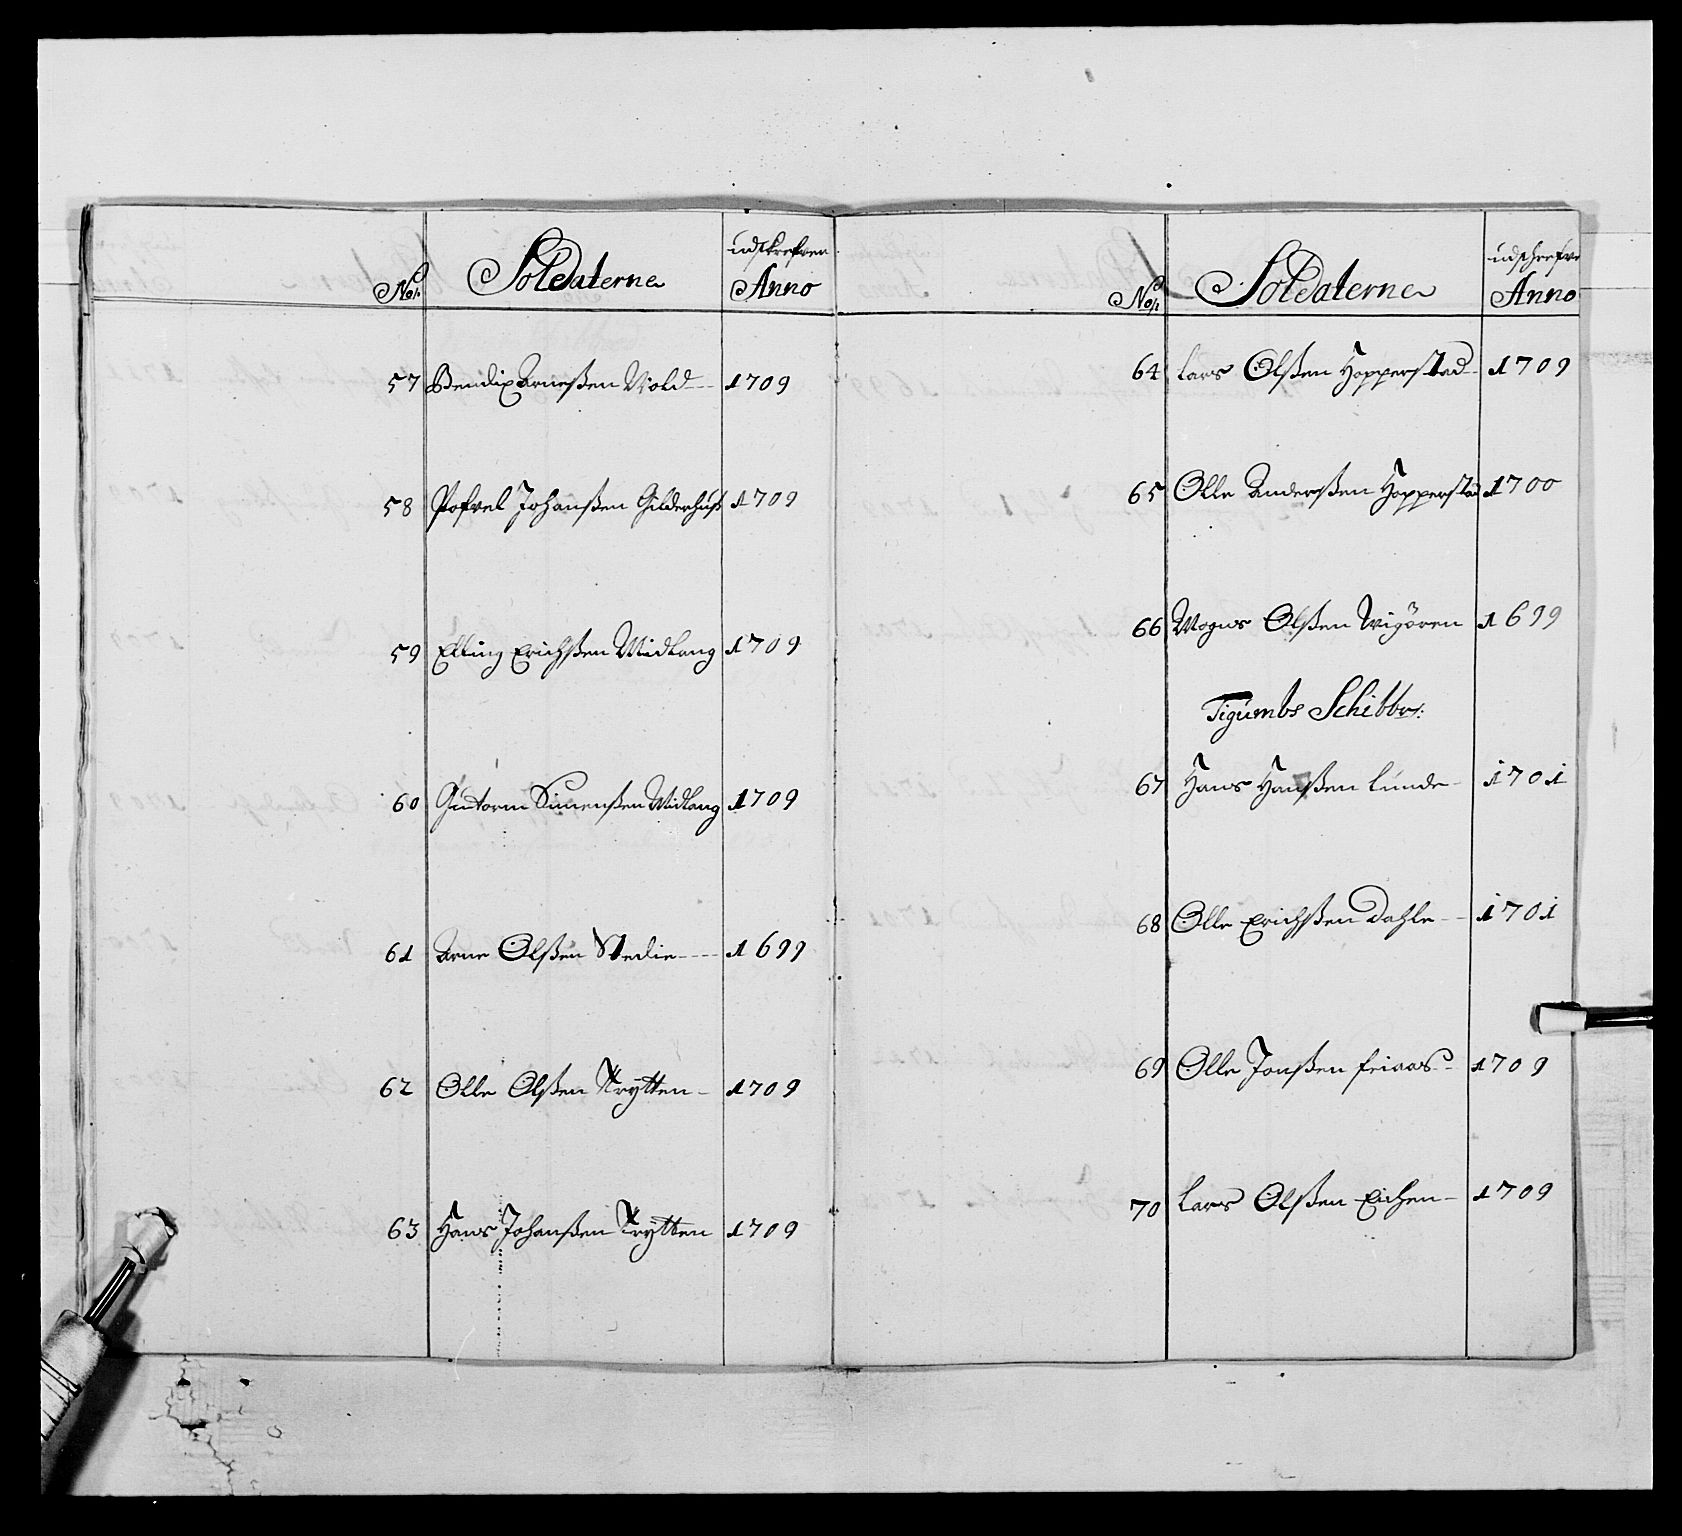 No: Soldaterne udskrefven Anno
57 Bendix Arneßen Wold 1709
58 Pofvel Johanßen Gilderhuß 1709
59 Elling Erichßen Midlang 1709
60 Gutorm Simenßen Midlang 1709
61 Arne Olßen Stedie 1699
62 Olle Olßen Trytten 1709
63 Hans Johanßen Trytten 1709
No: Soldaterne udschrefve Anno
64 Lars Olßen Hopperstad 1709
65 Olle Anderßen Hopperstad 1700
66 Mogns Olßen Wigören 1699
Tigumbs Schibbr:
67 Hans Hanßen Lunde 1701
68 Olle Erichßen Dahle 1701
69 Olle Jonßen feiaas 1709
70 Lars Olßen Eichen 1709